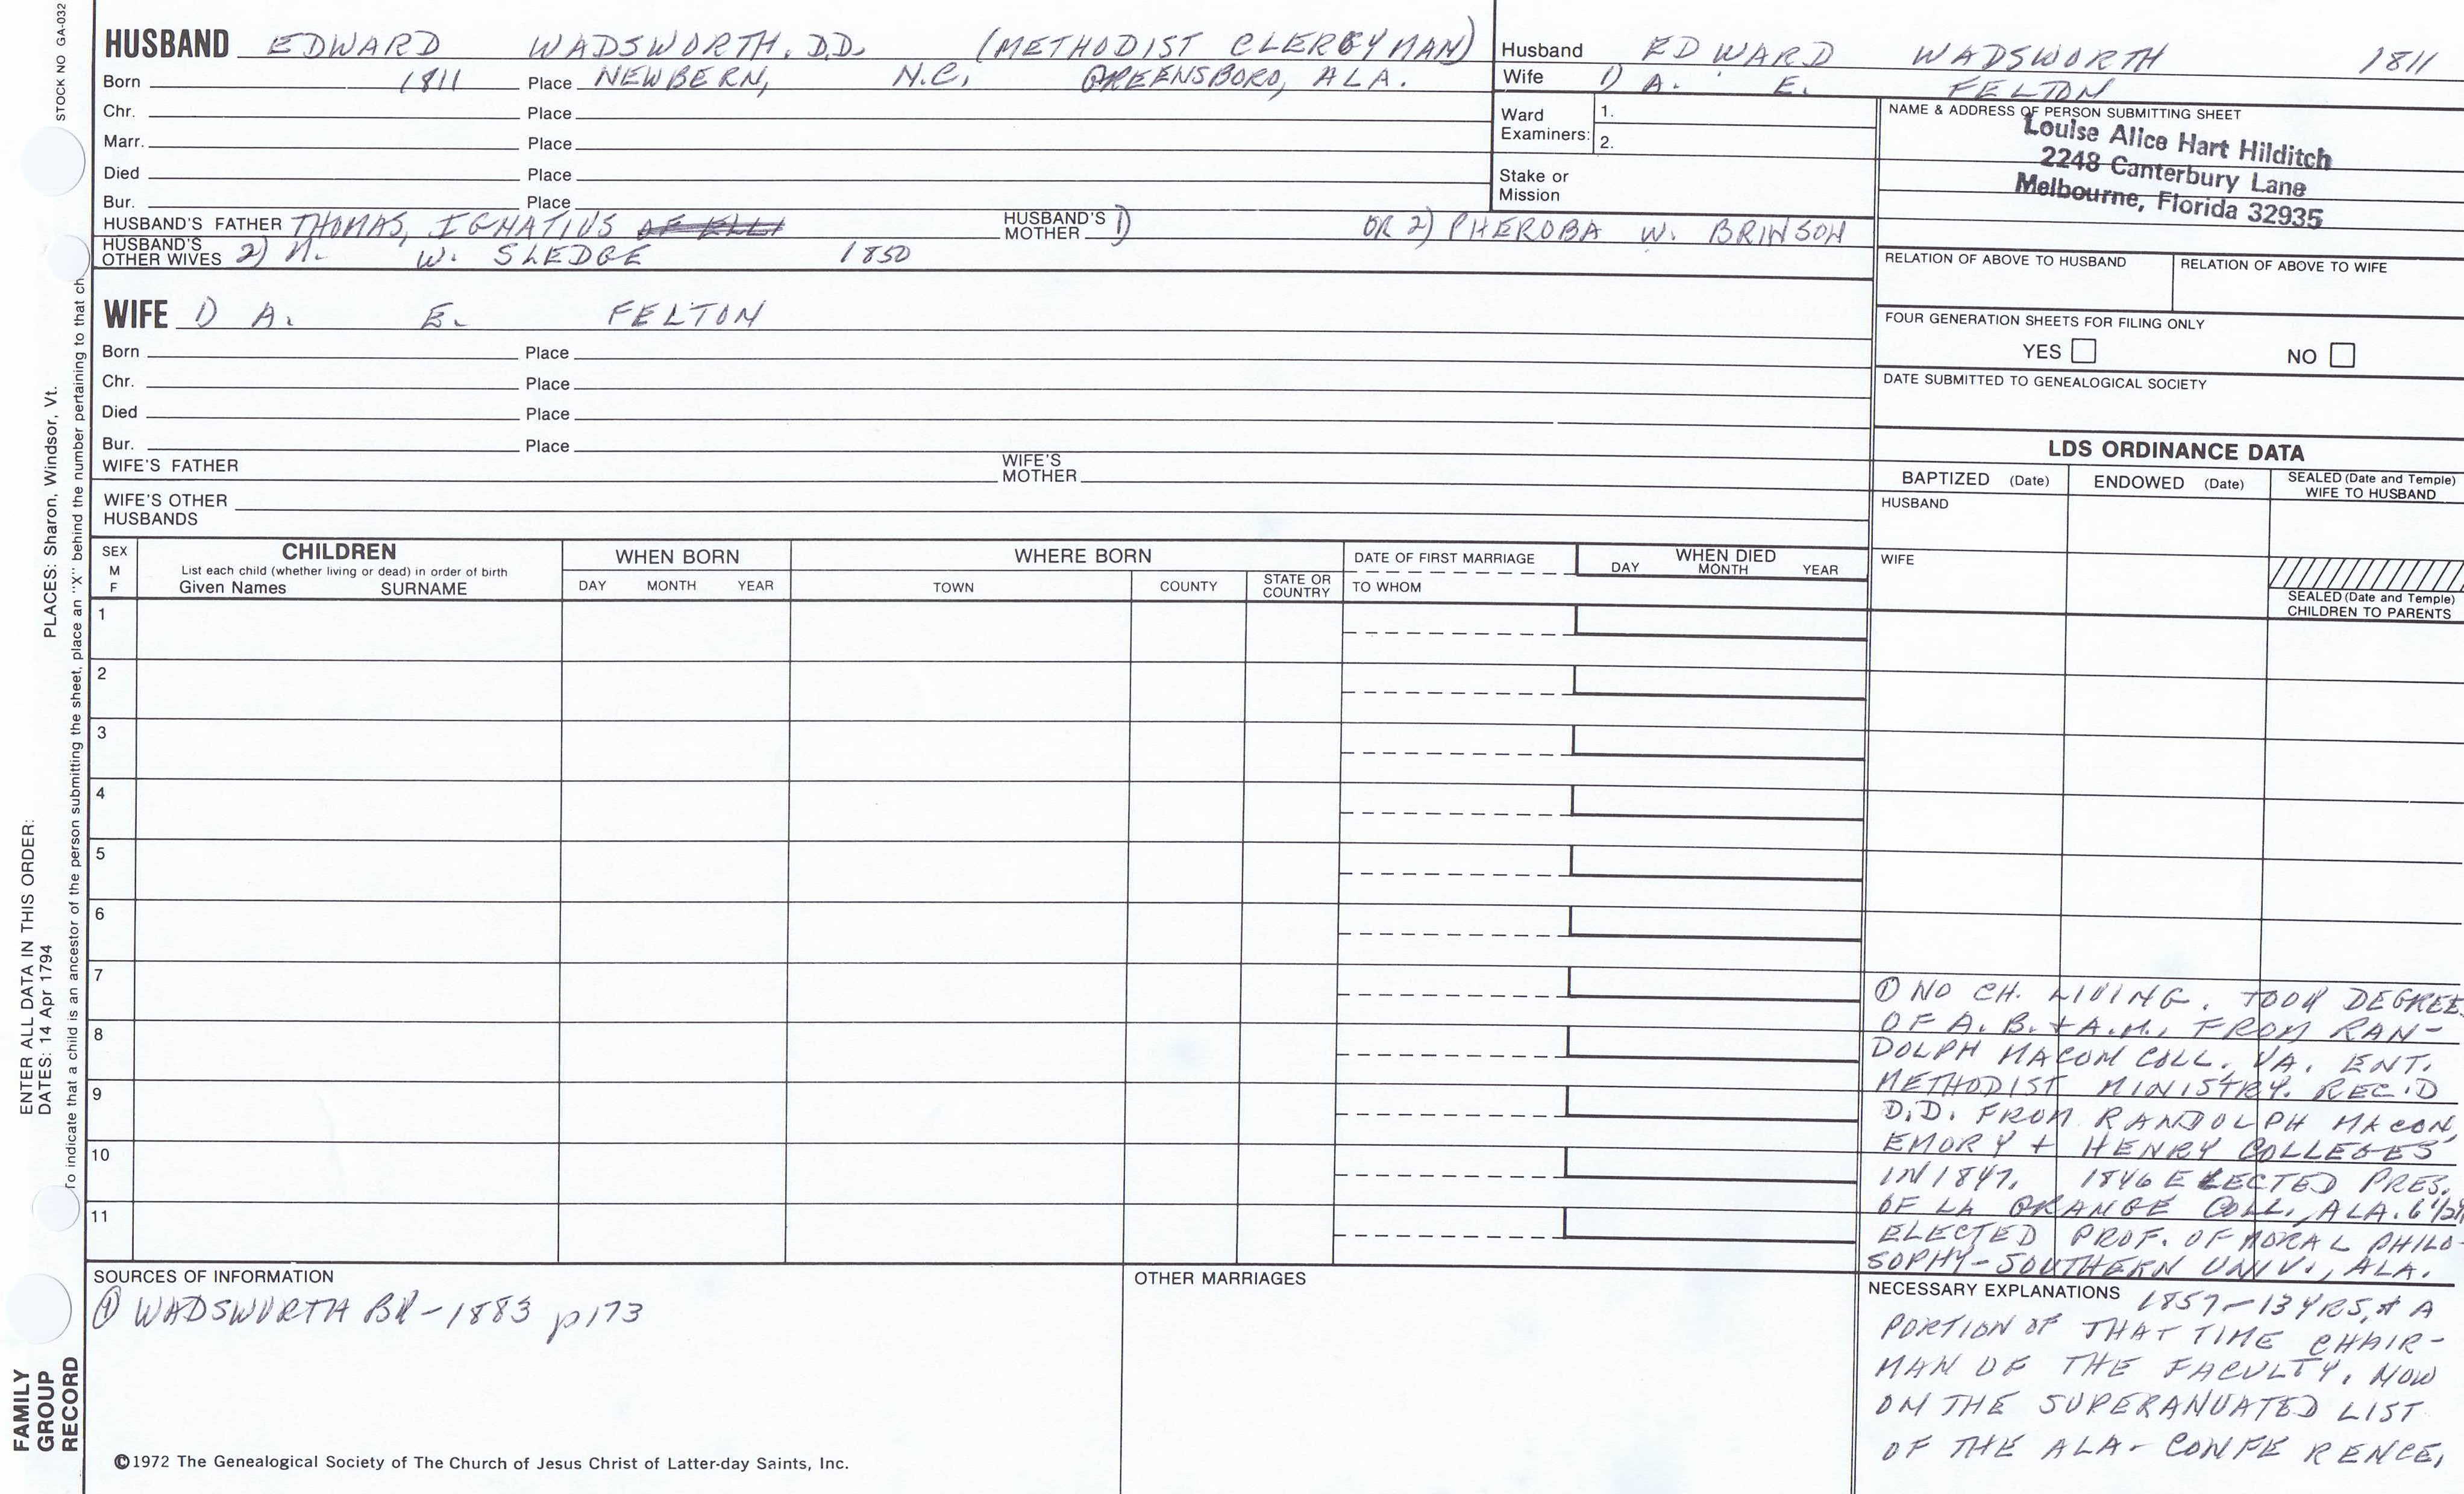 STOCK NO GA-032
PLACES: Sharon, Windsor, Vt.
ENTER ALL DATA IN THIS ORDER:
DATES: 14 Apr 1794
To indicate that a child is an ancestor of the person submitting the sheet, place an "X" behind the number pertaining to that ch
FAMILY
GROUP
RECORD
HUSBAND EDWARD WADSWORTH. D.D. (METHODIST CLERGYMAN)
Born 1811 Place NEWBERN, N.C. GREENSBORO, ALA.
Chr. Place
Marr. Place
Died Place
Bur. Place
HUSBAND'S FATHER THOMAS, IGNATIUS HUSBAND'S MOTHER 1) OR 2) PHEROBA W. BRINSON
HUSBAND'S OTHER WIVES 2) M. W. SLEDGE 1850
WIFE 1) A. E. FELTON
Born Place
Chr. Place
Died Place
Bur. Place
WIFE'S FATHER WIFE'S MOTHER
WIFE'S OTHER HUSBANDS
Husband EDWARD WADSWORTH 1811
Wife 1) A. E. FELTON
Ward Examiners: 1.
2.
Stake or Mission
NAME & ADDRESS OF PERSON SUBMITTING SHEET
Louise Alice Hart Hilditch
2248 Canterbury Lane
Melbourne, Florida 32935
RELATION OF ABOVE TO HUSBAND RELATION OF ABOVE TO WIFE
FOUR GENERATION SHEETS FOR FILING ONLY
YES NO
DATE SUBMITTED TO GENEALOGICAL SOCIETY
LDS ORDINANCE DATA
BAPTIZED (Date) ENDOWED (Date) SEALED (Date and Temple) WIFE TO HUSBAND
HUSBAND
WIFE
SEALED (Date and Temple) CHILDREN TO PARENTS
SEX M F
CHILDREN
List each child (whether living or dead) in order of birth
Given Names SURNAME
WHEN BORN
DAY MONTH YEAR
WHERE BORN
TOWN COUNTY STATE OR COUNTRY
DATE OF FIRST MARRIAGE
TO WHOM
WHEN DIED
DAY MONTH YEAR
1
2
3
4
5
6
7
8
9
10
11
① NO CH. LIVING. TOOK DEGREE
OF A.B. + A.M., FROM RAN-
DOLPH MACON COLL., VA. ENT.
METHODIST MINISTRY. REC'D
D.D. FROM RANDOLPH MACON,
EMORY + HENRY COLLEGES
IN 1847. 1846 ELECTED PRES.
OF LA GRANGE COLL., ALA. 6 1/2
ELECTED PROF. OF MORAL PHILO-
SOPHY-SOUTHERN UNIV., ALA.
SOURCES OF INFORMATION
① WADSWORTH BK-1883 p173
OTHER MARRIAGES
NECESSARY EXPLANATIONS 1857-13 YRS, + A
PORTION OF THAT TIME CHAIR-
MAN OF THE FACULTY. NOW
ON THE SUPERANUATED LIST
OF THE ALA- CONFERENCE.
©1972 The Genealogical Society of The Church of Jesus Christ of Latter-day Saints, Inc.